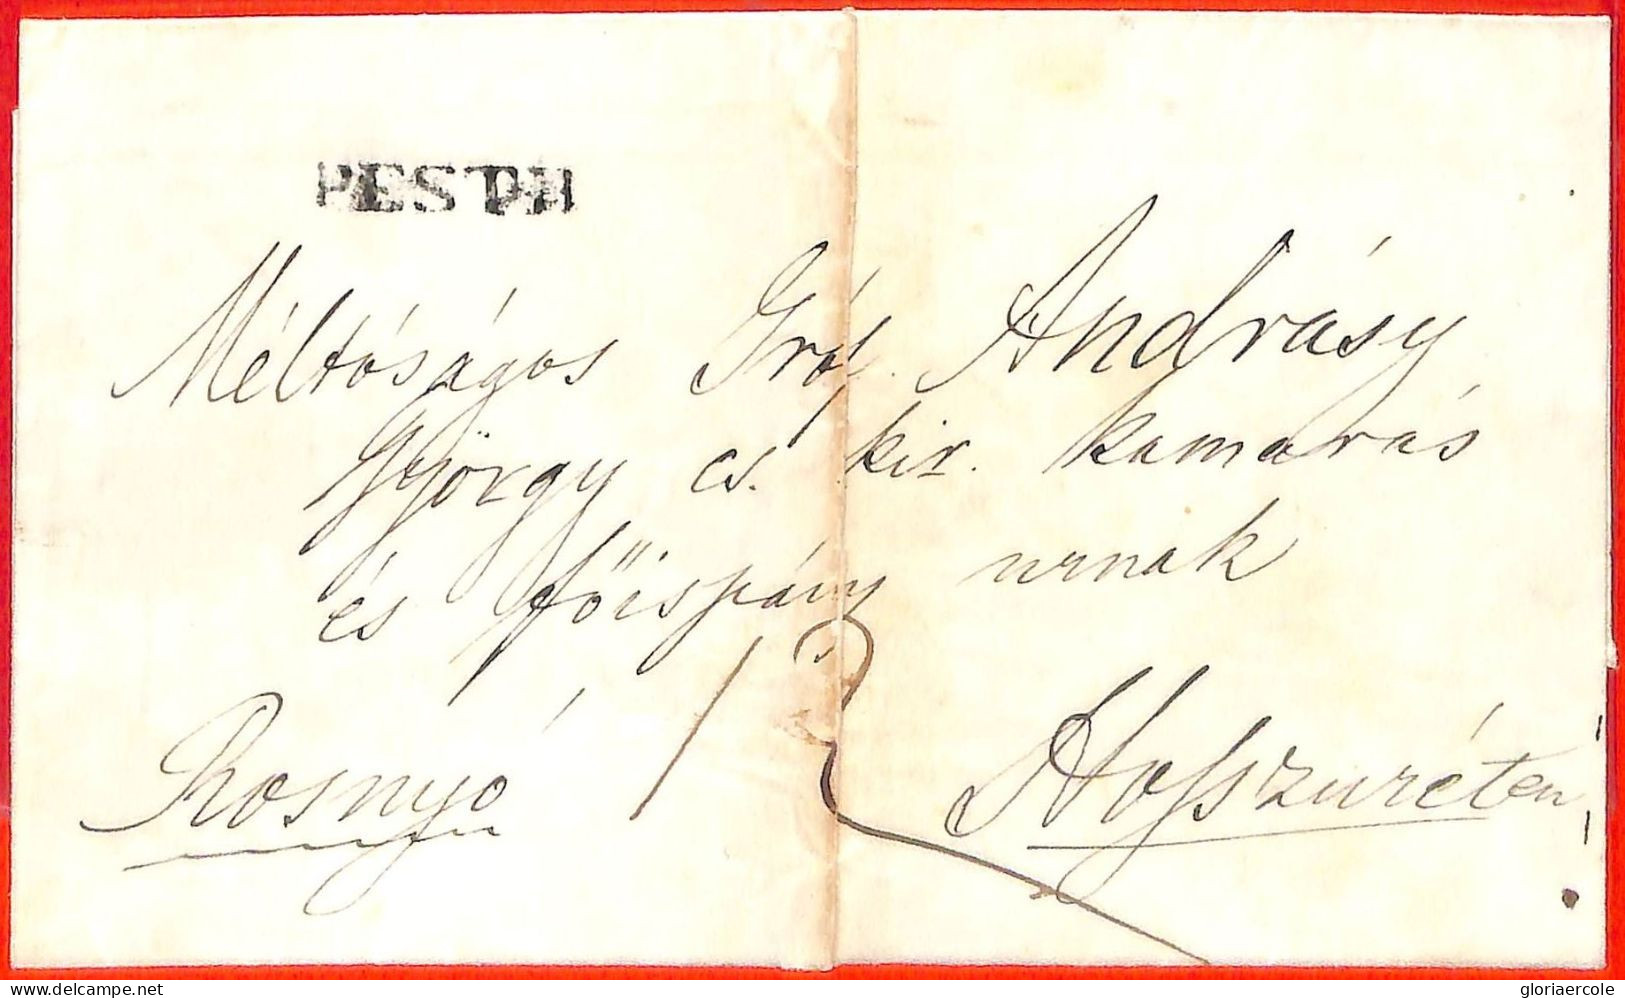 PESTH
Méltóságos Gróf Andrásy
György cs. kir. kamarás
és főispány urnak
12
Rosnyó
Hosszuréten
delcampe.net
gloriaercole